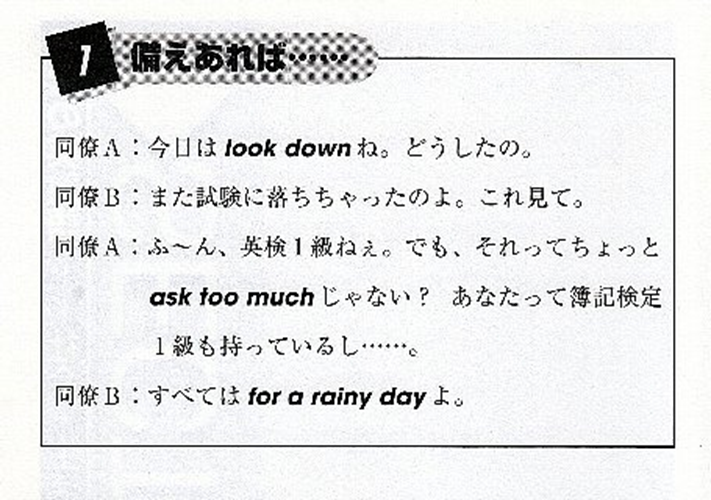 1 備えあれば……
同僚A：今日は look down ね。どうしたの。
同僚B：また試験に落ちちゃったのよ。これ見て。
同僚A：ふ〜ん、英検１級ねぇ。でも、それってちょっと
ask too much じゃない？ あなたって簿記検定
１級も持っているし……。
同僚B：すべては for a rainy day よ。